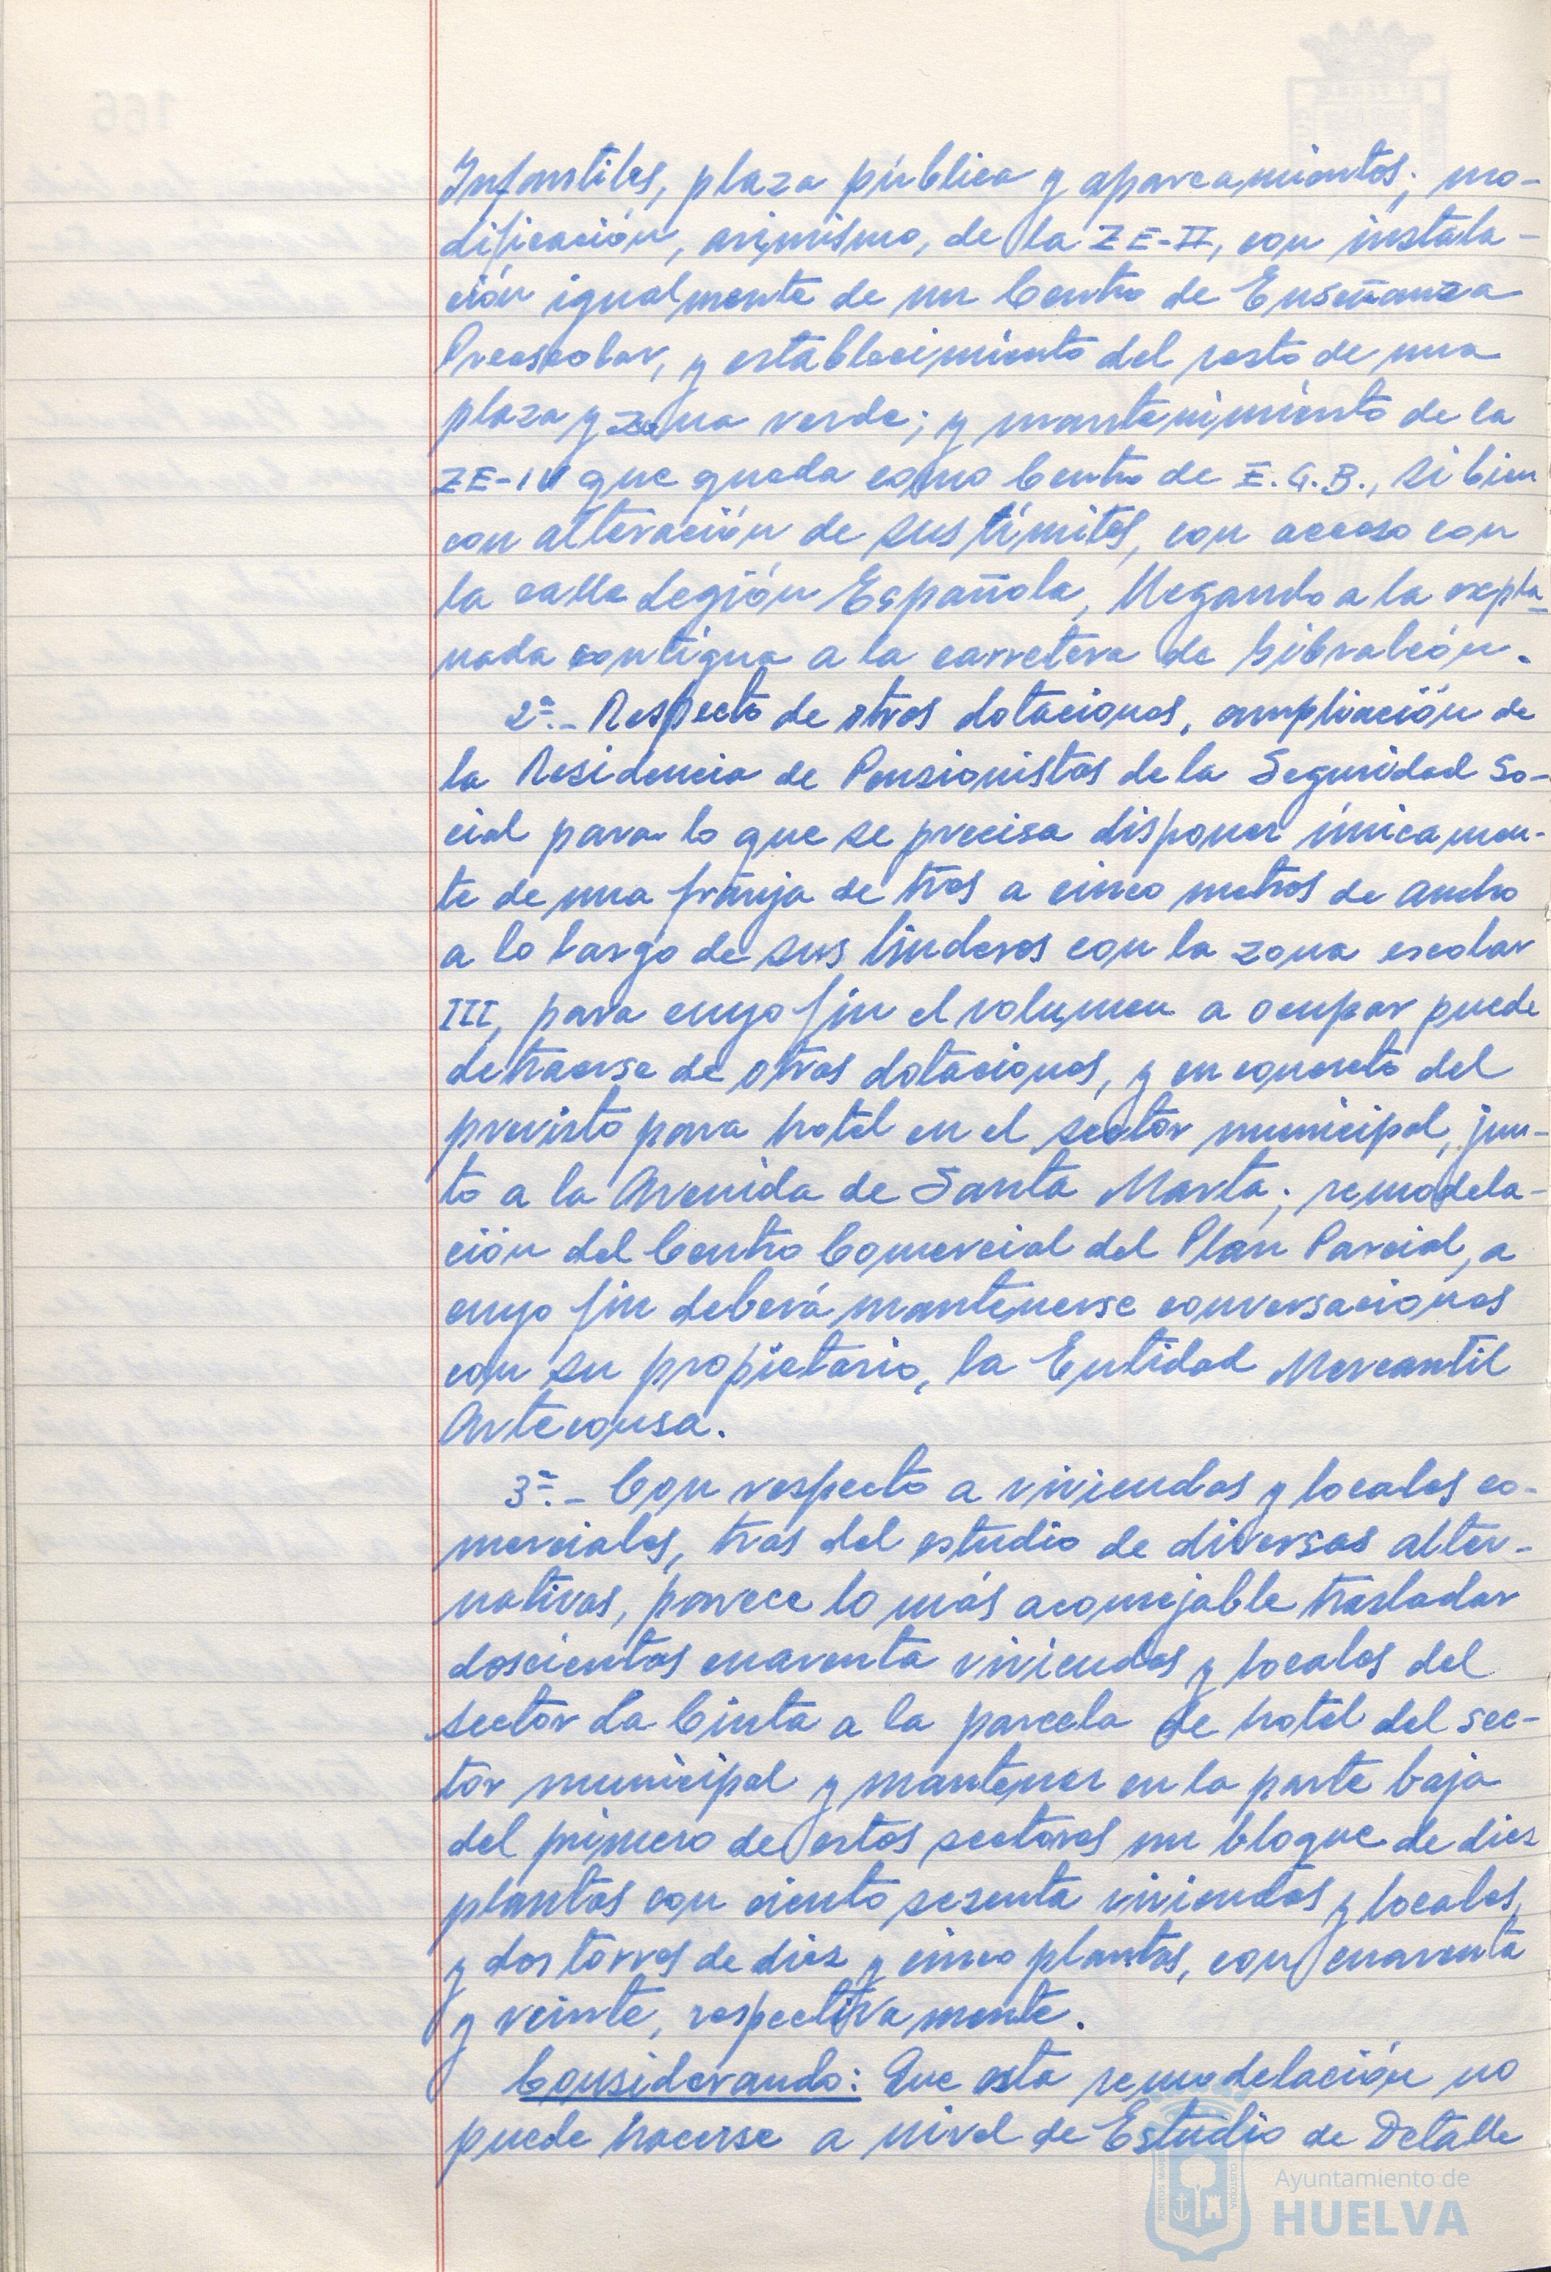 Infantiles, plaza pública y aparcamientos; mo-
dificación, asimismo, de la ZE-II, con instala-
ción igualmente de un Centro de Enseñanza
Preescolar, y establecimiento del resto de una
plaza y zona verde; y mantenimiento de la
ZE-IV que queda como Centro de E.G.B., si bien
con alteración de sus límites, con acceso con
la calle Legión Española, llegando a la expla-
nada contigua a la carretera de Gibraleón.
2ª.- Respecto de otras dotaciones, ampliación de
la Residencia de Pensionistas de la Seguridad So-
cial para lo que se precisa disponer únicamen-
te de una franja de tres a cinco metros de ancho
a lo largo de sus linderos con la zona escolar
III, para cuyo fin el volumen a ocupar puede
detraerse de otras dotaciones, y en concreto del
previsto para hotel en el sector municipal, jun-
to a la Avenida de Santa Marta; remodela-
ción del Centro Comercial del Plan Parcial, a
cuyo fin deberá mantenerse conversaciones
con su propietario, la Entidad Mercantil
Arteconsa.
3ª.- Con respecto a viviendas y locales co-
merciales, tras del estudio de diversas alter-
nativas, parece lo más aconsejable trasladar
doscientas cuarenta viviendas y locales del
sector La Cinta a la parcela de hotel del sec-
tor municipal y mantener en la parte baja
del primero de estos sectores un bloque de diez
plantas con ciento sesenta viviendas y locales,
y dos torres de diez y cinco plantas, con cuarenta
y veinte, respectivamente.
Considerando: Que esta remodelación no
puede hacerse a nivel de Estudio de Detalle
Ayuntamiento de
HUELVA